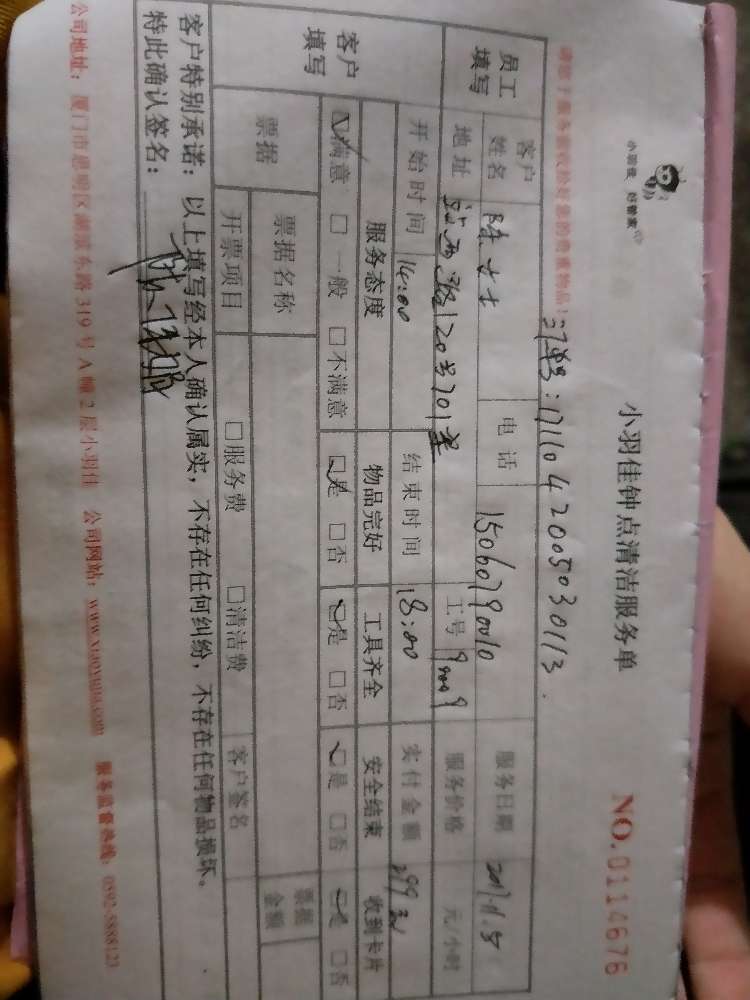 小羽佳 好管家
小羽佳钟点清洁服务单
NO.0114676
请您于服务前收检好您的贵重物品!
订单号:17110420050030113.
员工填写
客户姓名 陈女士 电话 15060790010 服务日期 2017.11.5
地址 120号701室 工号 90009 服务价格 元/小时
开始时间 14:00 结束时间 18:00 实付金额 299元
客户填写
服务态度 物品完好 工具齐全 安全结束 收到卡片
☑满意 □一般 □不满意 ☑是 □否 ☑是 □否 ☑是 □否 ☑是 □否
票据 票据名称 票据金额
开票项目 □服务费 □清洁费 客户签名
客户特别承诺:以上填写经本人确认属实,不存在任何纠纷,不存在任何物品损坏。
特此确认签名:
公司地址:厦门市思明区湖滨东路319号A幢2层小羽佳 公司网站:www.xiaoyujia.com 服务监督热线:0592-5888123